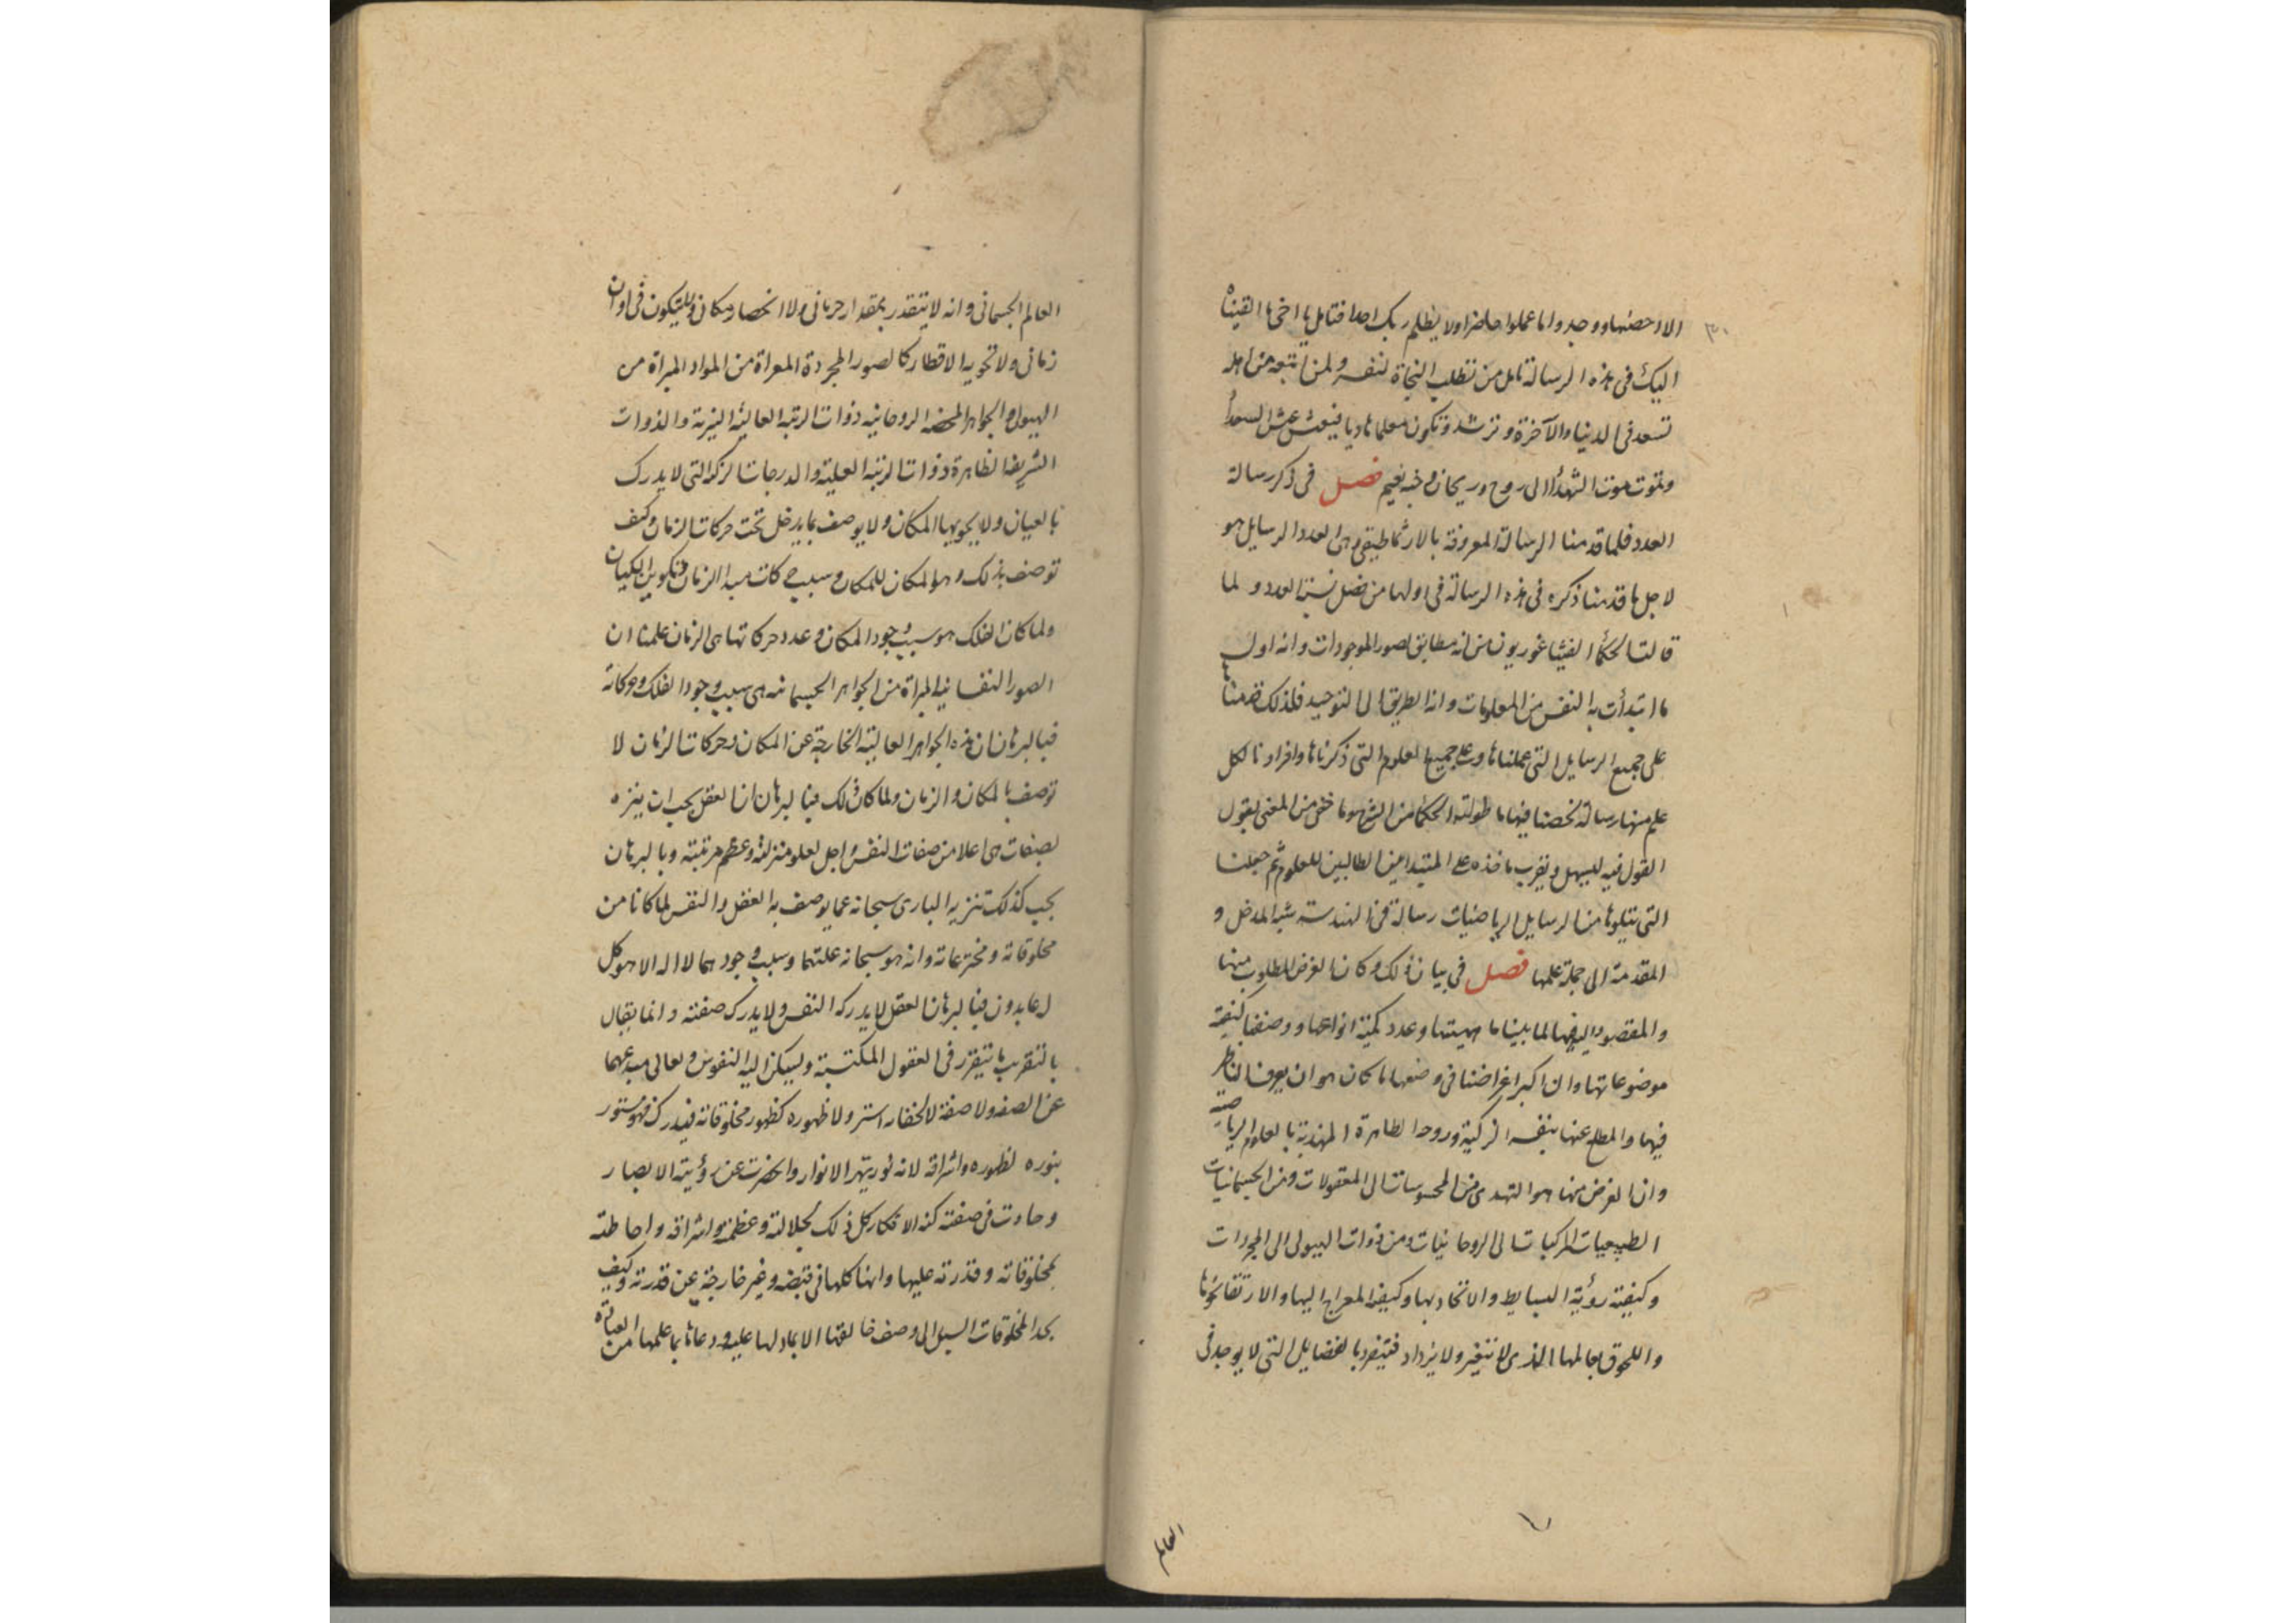 ٣٠
الا احصيها ووجدوا ما عملوا حاضرا ولا يظلم ربك احدا فتامل يا اخي ما القيناه
اليك في هذه الرسالة تامل من تطلب النجاة لنفسه ولمن اتبعه من اهله
تسعد في الدنيا والآخرة وترشد وتكون معلما هاديا فتعش عيش السعدأ
وتموت موت الشهدأ الى روح وريحان وجنة نعيم فصل في ذكر رسالة
العدد فلما قدمنا الرسالة المعروفة بالارثماطيقي وهي العدد الرسايل هو
لاجل ما قدمنا ذكره في هذه الرسالة في اولها من فضل نسبة العدد و لما
قالت الحكمأ الفيثاغوريون من انه مطابق لصور الموجودات وانه اول
ما ابتدأت به النفس من المعلومات وانه الطريق الى التوحيد فلذلك قدمناها
على جميع الرسايل التي عملناها وعلى جميع العلوم التي ذكرناها وافرادنا لكل
علم منها رسالة لخصنا فيها ما طولته الحكمأ من الشرح وما خفي من المعنى بقول
القول فيه ليسهل ويقرب ماخذه على المبتدأمين الطالبين للعلوم ثم جعلنا
التي تتلوها من الرسايل الرياضيات رسالة في الهندسة شبه المدخل و
المقدمة الى جملة علمها فصل في بيان ذلك وكان الغرض المطلوب منها
والمقصود اليه فيها لما بينا ماهيتها وعدد كمية انواعها ووصفنا كيفية
موضوعاتها وان اكبر اغراضنا في وضعها ما كان هو ان يعرف الناظر
فيها والمطلع عنها بنفسه الزكية وروحه الطاهرة المهذبة بالعلوم الرياضية
وان الغرض منها هو التهدى من المحسوسات الى المعقولات ومن الجسمانيات
الطبيعيات المركبات الى الروحانيات ومن ذوات الهيولى الى المجردات
وكيفية رؤية البسايط والاتحاد بها وكيفية المعراج اليها والارتقا نحوها
واللحوق بعالمها الذي لا يتغير ولا يزداد فتنفرد بالفضايل التي لا يوجد في
العالم
العالم الجسماني وانه لا يتقدر بمقدار جرماني ولا انحصار مكاني ولا يتكون في اوان
زماني ولا تحويه الاقطار كالصور المجردة المعراة من المواد المبراة من
الهيولى والجواهر المحضة الروحانية ذوات الرتبة العالية النيرة والذوات
الشريفة الطاهرة ذوات الرتبة العلية والدرجات الزكية التي لا يدرك
بالعيان ولا يحويها المكان ولا يوصف بما يدخل تحت حركات الزمان وكيف
توصف بذلك وهو المكان للمكان وسبب حركات مبدا الزمان وتكوين الكيان
ولما كان الفلك هو سبب وجود المكان وعدد حركاتها هى الزمان علمنا ان
الصور النفسانية المبراة من الجواهر الجسمانية هي سبب وجود الفلك وحركاته
فبالبرهان ان هذه الجواهر العالية الخارجة عن المكان وحركات الزمان لا
توصف بالمكان والزمان ولما كان ذلك فبالبرهان ان العقل يجب ان ينزه
بصفات هي اعلا من صفات النفس واجل لعلو منزلته وعظم مرتبته وبالبرهان
يجب كذلك تنزيه البارى سبحانه عما يوصف به العقل والنفس لما كانا من
مخلوقاته ومخترعاته وانه هو سبحانه علتهما وسبب وجودهما لا اله الا هو كل
له عابدون فبالبرهان العقل لا يدركه النفس ولا يدرك صفته وانما يقال
بالتقريب ما يتقرر في العقول المكتسبة وليسكن اليه النفوس وتعالى مبدعهما
عن الصفة ولا صفة لا لخفاء استتر ولا ظهوره كظهور مخلوقاته فيدرك فهو مستور
بنوره لظهوره واشراقه لانه نور يبهر الانوار وانحصرت عن رؤيته الابصار
وحارت في صفته كنه الافكار كل ذلك لجلالته وعظمته واشراقه واحاطته
بمخلوقاته وقدرته عليها وانها كلها في قبضته وغير خارجة عن قدرته وكيف
يجد المخلوقات السبيل الى وصف خالقها الا بما دلها عليه ودعاها بما علمها من العبادة